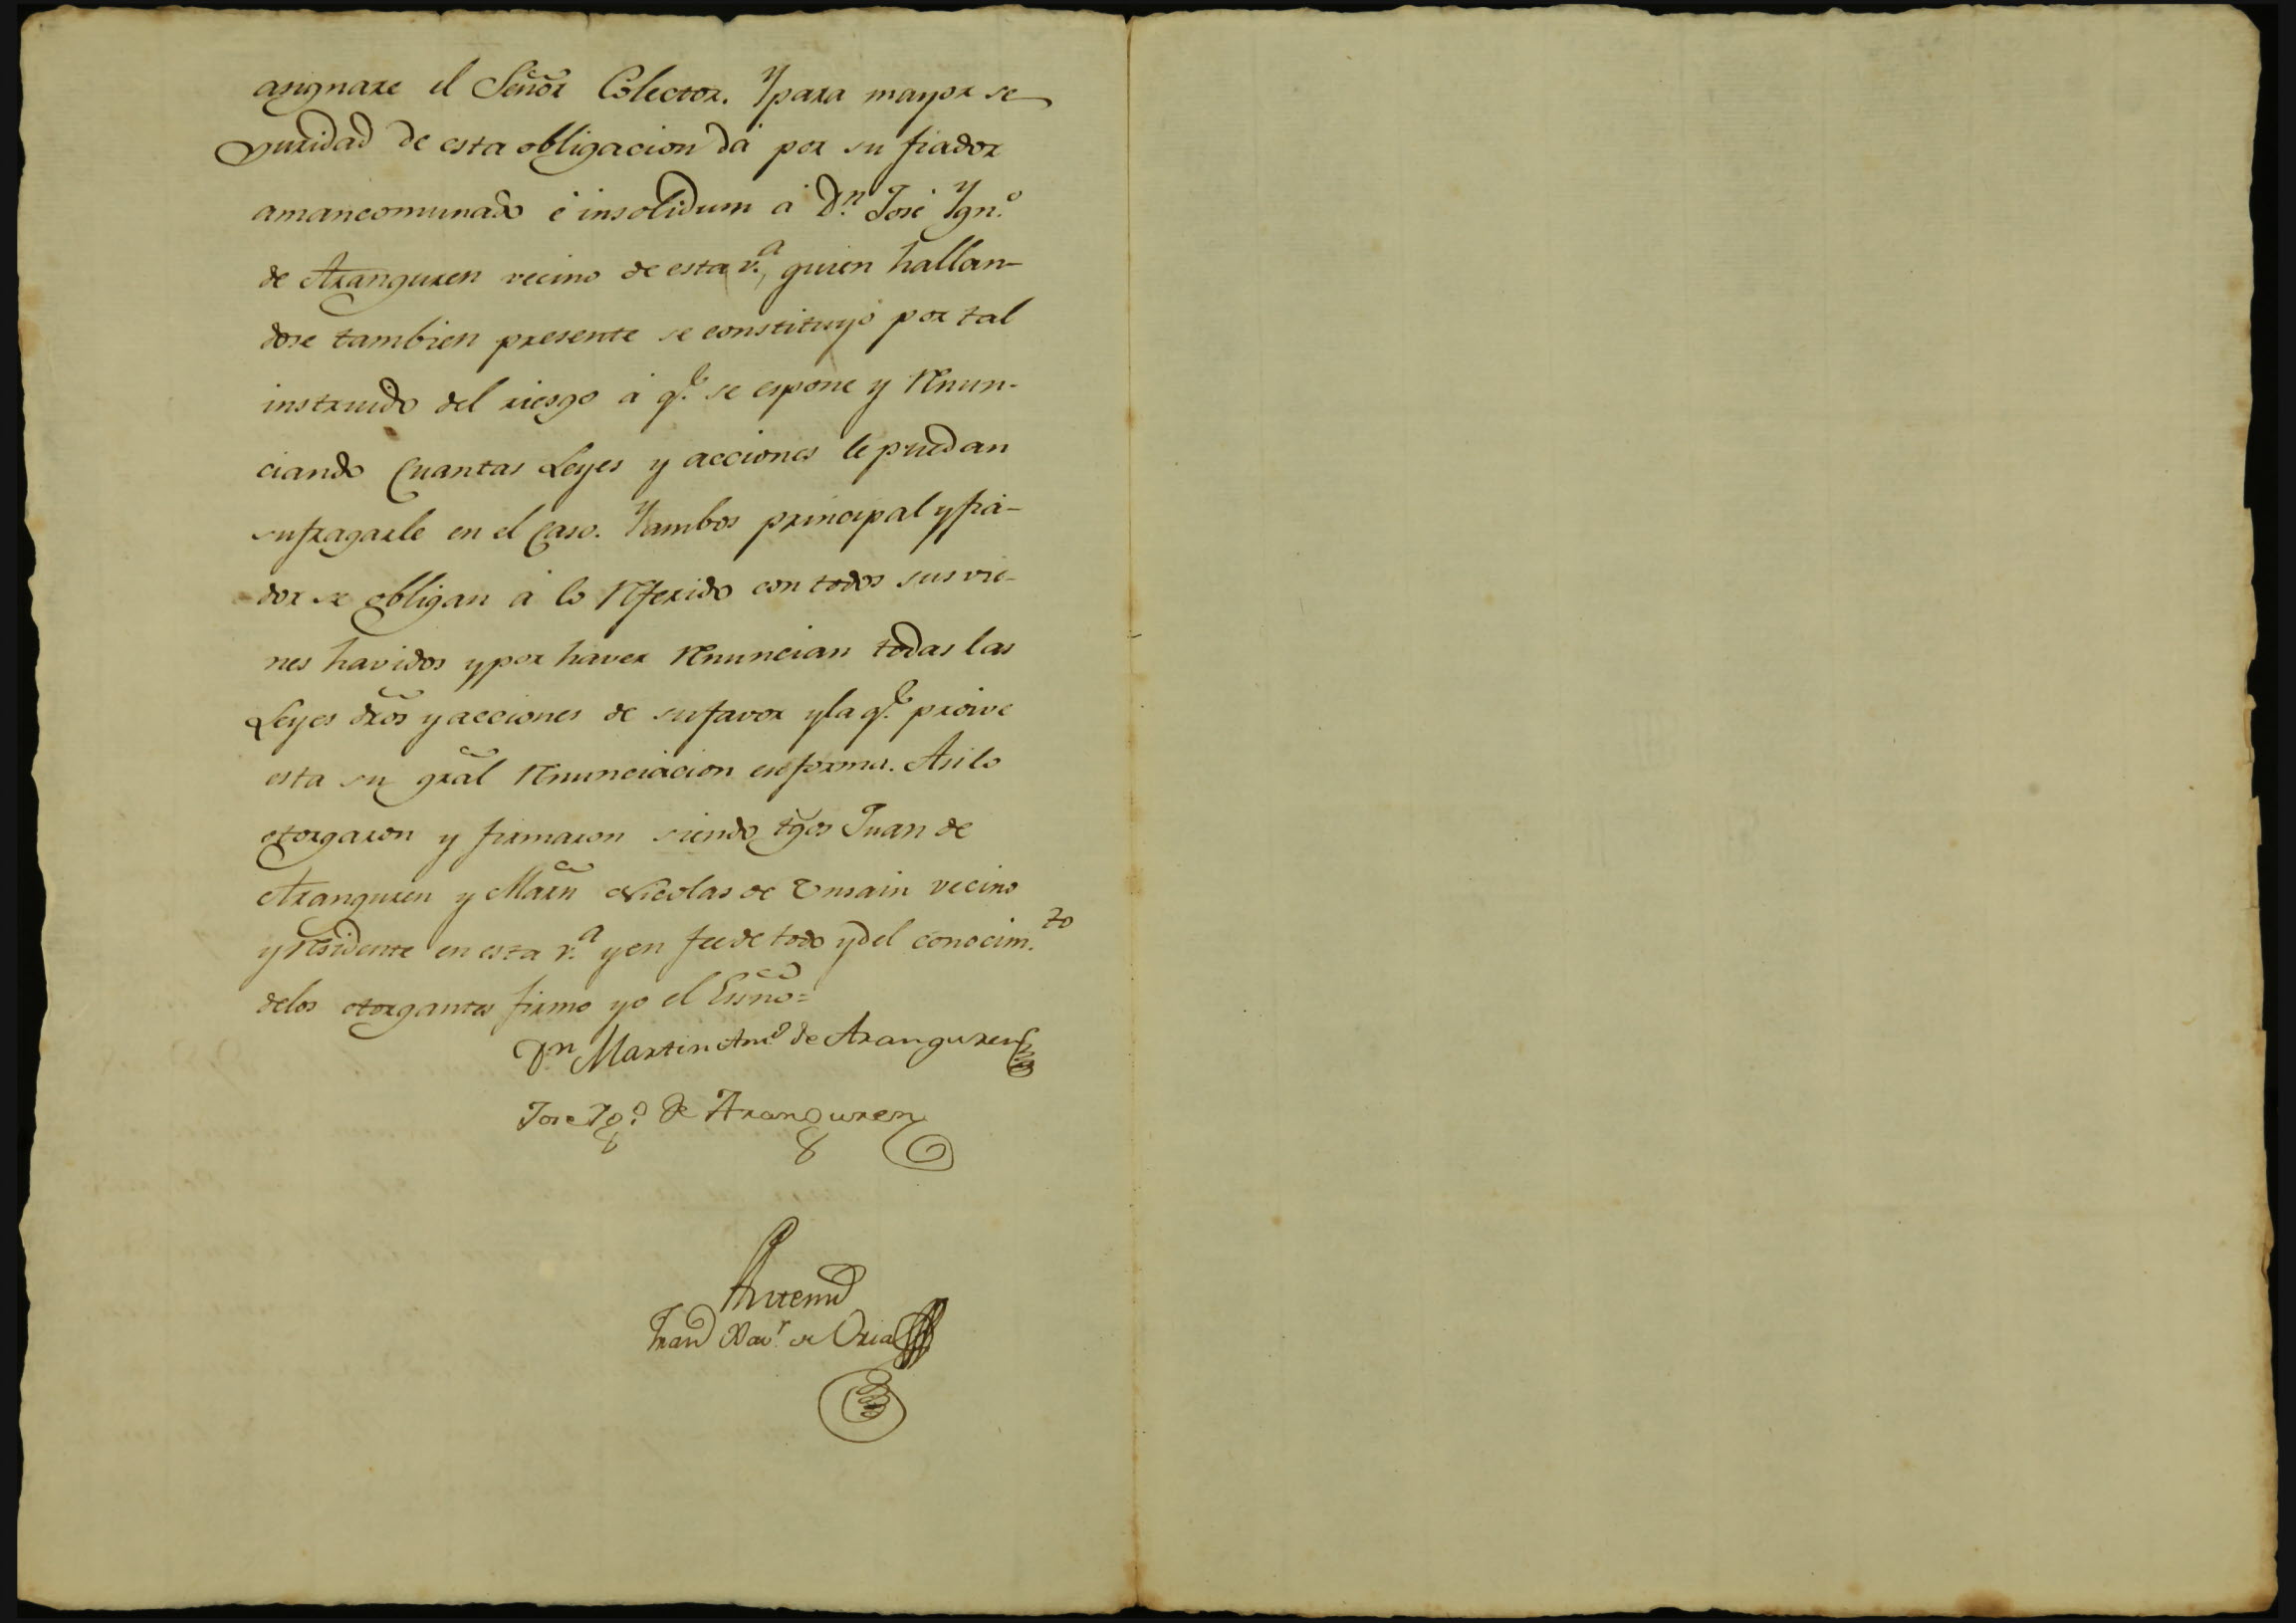 asignare el Señor Colector. Y para mayor se
guridad de esta obligacion dá por su fiador
amancomunado é insolidum á Dn. José Ygn.o
de Aranguren vecino de esta v.a, quien hallan-
dose tambien presente se constituyó por tal
instruido del riesgo á q.e se espone y renun-
ciando Cuantas Leyes y acciones le puedan
sufragarle en el Caso. Y ambos principal y fia-
dor se obligan á lo referido con todos sus vie-
nes havidos y por haver renuncian todas las
Leyes dros y acciones de su favor y la q.e proive
esta su gral renunciacion en forma. Asi lo
otorgaron y firmaron siendo tgos Juan de
Aranguren y Marn Nicolas de vecino
y residente en esta v.a y en fee de todo y del conocim.to
de los otorgantes firmo yo el Essno=
Dn Martin Ant.o de Aranguren
Jose Yg.o de Aranguren
Antemi
Fran.co Xav.r de Oria